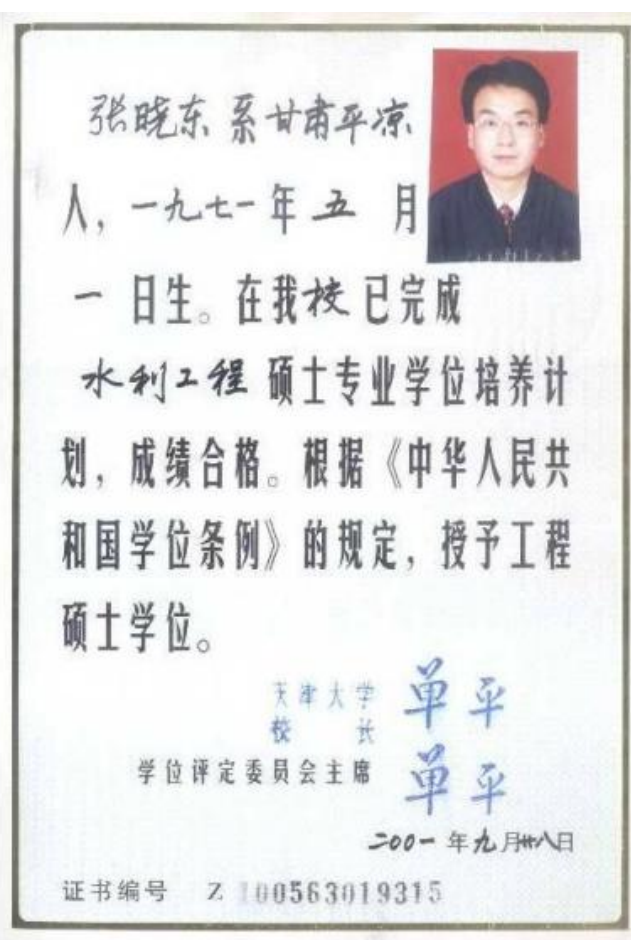 张晓东系甘肃平凉
人，一九七一年五月
一日生。在我校已完成
水利工程硕士专业学位培养计
划，成绩合格。根据《中华人民共
和国学位条例》的规定，授予工程
硕士学位。
天津大学
校长 单平
学位评定委员会主席 单平
二00一年九月廿八日
证书编号 Z 100563019315